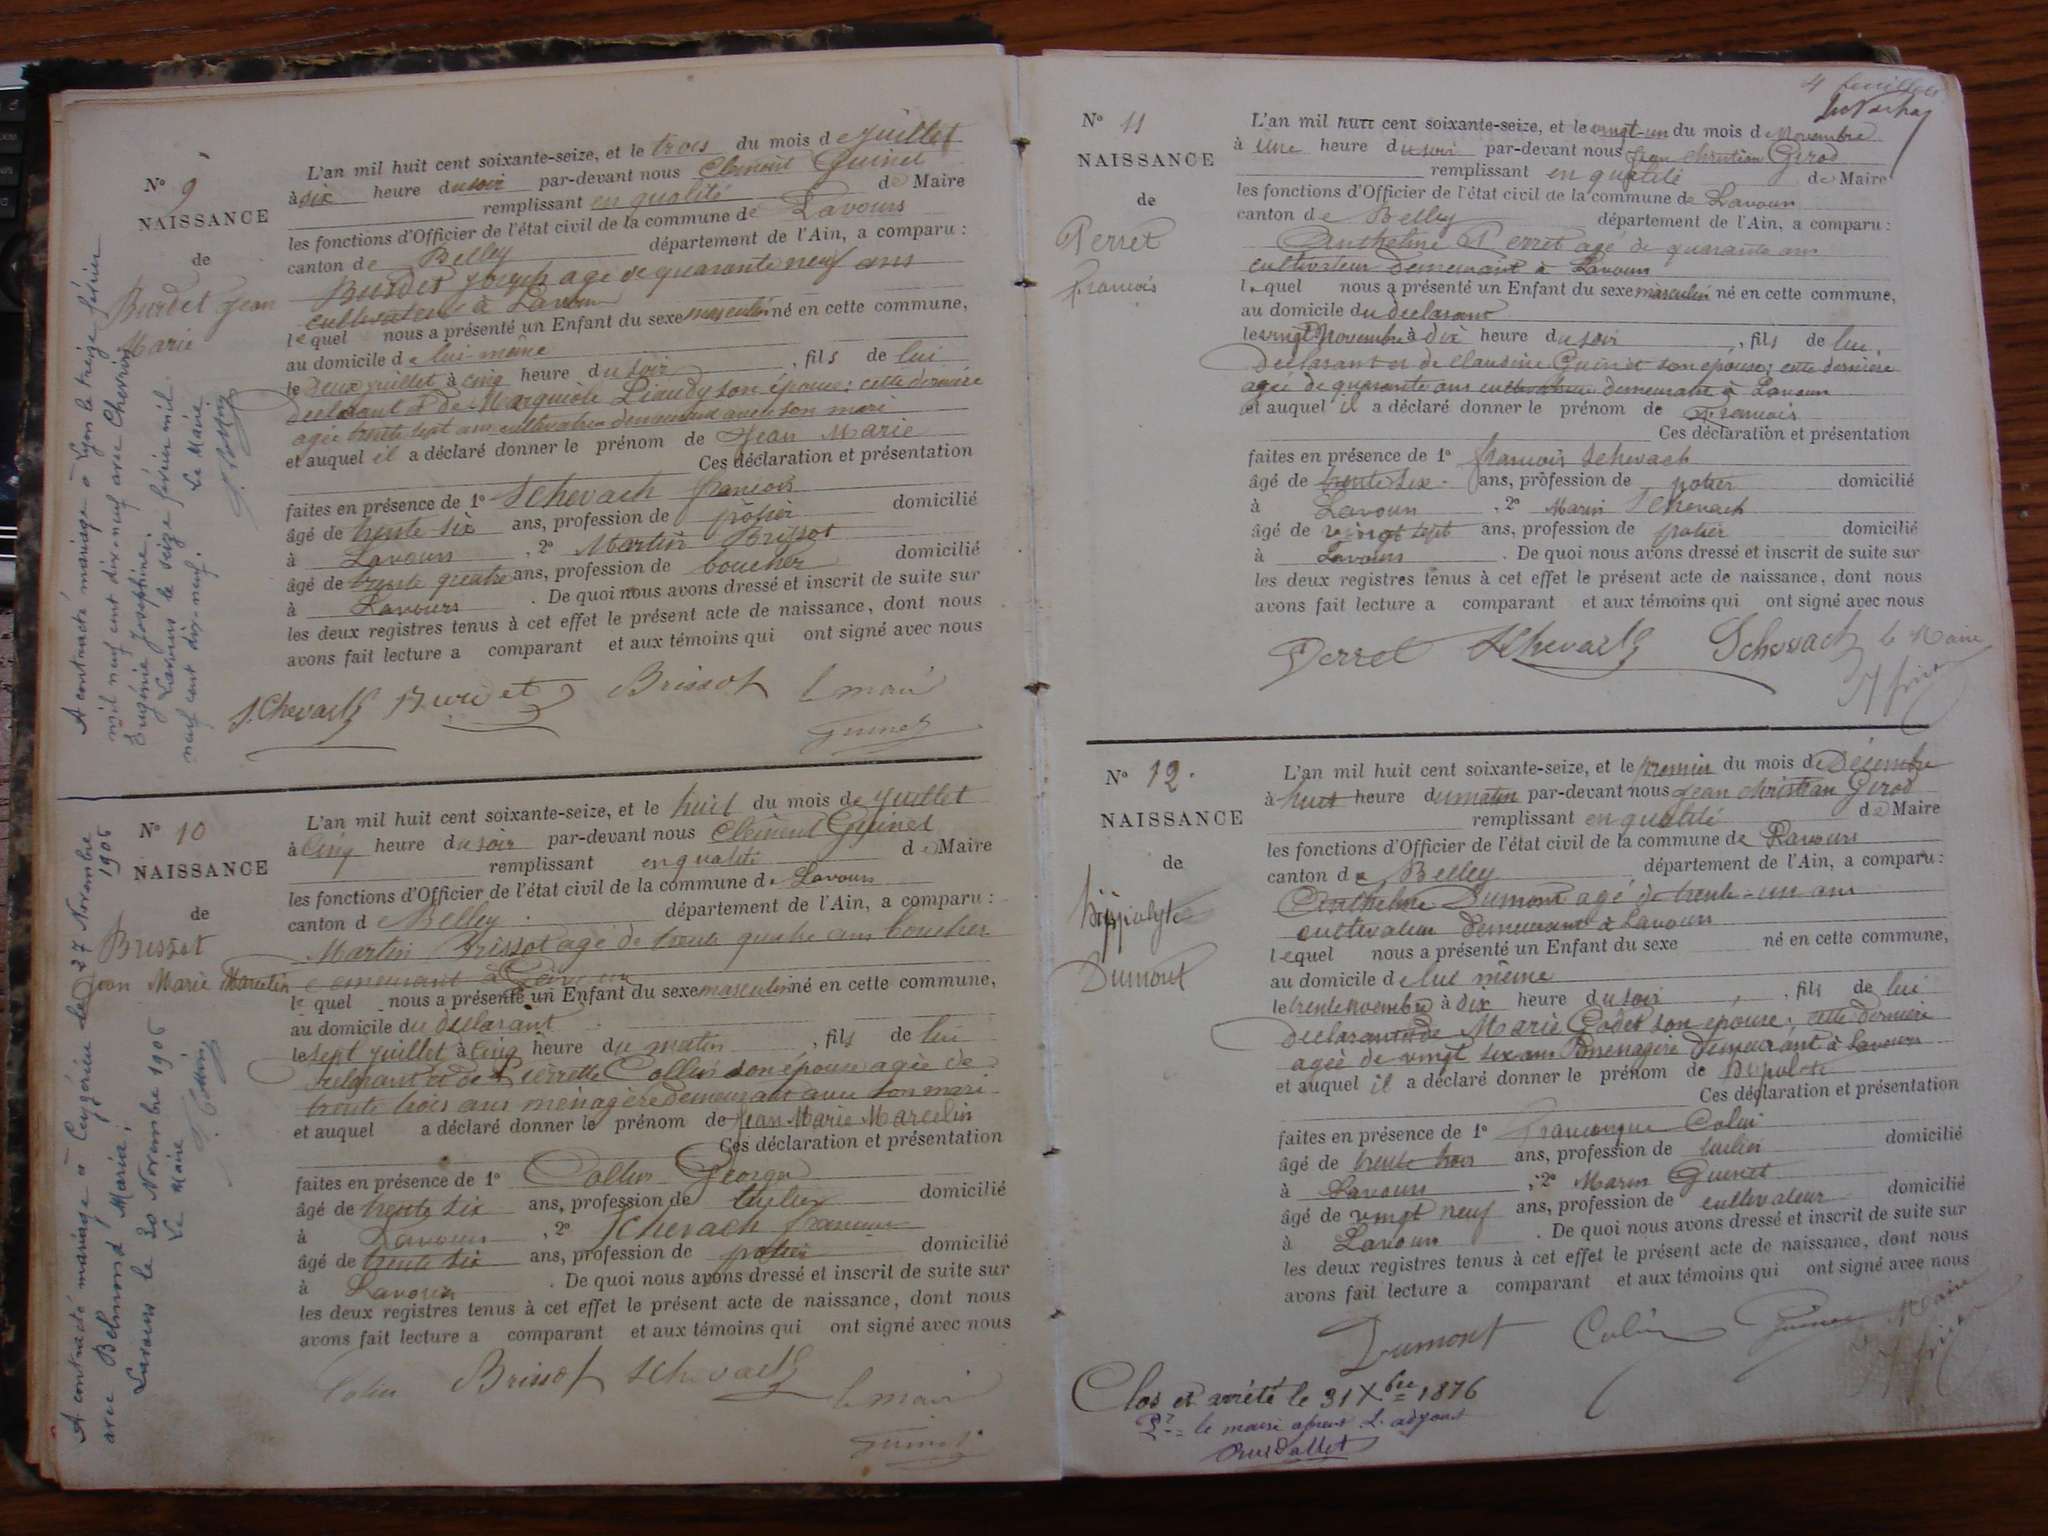 Nº 9
NAISSANCE
de
Burdet Jean
Marie
A contracté mariage à Lyon le treize février
mil neuf cent dix-neuf avec Chevrier
Eugénie Joséphine.
Lavours le seize février mil
neuf cent dix-neuf. Le Maire
L'an mil huit cent soixante-seize, et le trois du mois de juillet
à six heure du soir par-devant nous Clement Guinet
remplissant en qualité de Maire
les fonctions d'Officier de l'état civil de la commune de Lavours
canton de Belley département de l'Ain, a comparu :
Burdet Joseph agé de quarante neuf ans
cultivateur à Lavours
lequel nous a présenté un Enfant du sexe masculin né en cette commune,
au domicile de lui-même
le deux juillet à cinq heure du soir , fils de lui
declarant & de Liaudy son épouse; cette dernière
agée trente sept ans cultivatrice demeurant avec son mari
et auquel il a déclaré donner le prénom de Jean Marie
Ces déclaration et présentation
faites en présence de 1º Schevach francois
âgé de trente six ans, profession de potier domicilié
à Lavours , 2º Martin Brissot
âgé de trente quatre ans, profession de boucher domicilié
à Lavours . De quoi nous avons dressé et inscrit de suite sur
les deux registres tenus à cet effet le présent acte de naissance, dont nous
avons fait lecture a comparant et aux témoins qui ont signé avec nous
Schevach Burdet Brissot le maire
Guinet
Nº 10
NAISSANCE
de
Brissot
Jean Marie Marcelin
A contracté mariage à Ceyzérieu le 27 Novembre 1906
avec Belmond Maria;
Lavours le 30 Novembre 1906
Le Maire
L'an mil huit cent soixante-seize, et le huit du mois de juillet
à cinq heure du soir par-devant nous Clément Guinet
remplissant en qualité de Maire
les fonctions d'Officier de l'état civil de la commune de Lavours
canton d Belley département de l'Ain, a comparu :
Martin Brissot agé de trente quatre ans boucher
demeurant à Lavours
le quel nous a présenté un Enfant du sexe masculin né en cette commune,
au domicile du déclarant
le sept juillet à cinq heure du matin , fils de lui
declarant et de Pierrette Collin son épouse agée de
trente trois ans menagère demeurant avec son mari
et auquel a déclaré donner le prénom de Jean Marie Marcelin
Ces déclaration et présentation
faites en présence de 1º Collin George
âgé de trente six ans, profession de tuilier domicilié
à Lavours , 2º Schevach francois
âgé de trente six ans, profession de potier domicilié
à Lavours . De quoi nous avons dressé et inscrit de suite sur
les deux registres tenus à cet effet le présent acte de naissance, dont nous
avons fait lecture a comparant et aux témoins qui ont signé avec nous
Colin Brissot Schevach le maire
Guinet
4
Nº 11
NAISSANCE
de
Perret
francois
L'an mil huit cent soixante-seize, et le vingt-un du mois de Novembre
à une heure du soir par-devant nous Jean christian Girod
remplissant en qualité de Maire
les fonctions d'Officier de l'état civil de la commune de Lavours
canton de Belley département de l'Ain, a comparu :
Anthelme Perret agé de quarante ans
cultivateur demeurant à Lavours
lequel nous a présenté un Enfant du sexe masculin né en cette commune,
au domicile du declarant
le vingt Novembre à dix heure du soir , fils de lui
declarant et de Claudine Guinet son épouse; cette dernière
agée de quarante ans cultivatrice demeurant à Lavours
et auquel il a déclaré donner le prénom de francois
Ces déclaration et présentation
faites en présence de 1º francois Schevach
âgé de trente six ans, profession de potier domicilié
à Lavours , 2º Marin Schevach
âgé de vingt sept ans, profession de potier domicilié
à Lavours . De quoi nous avons dressé et inscrit de suite sur
les deux registres tenus à cet effet le présent acte de naissance, dont nous
avons fait lecture a comparant et aux témoins qui ont signé avec nous
Perret Schevach Schevach le Maire
Nº 12.
NAISSANCE
de
hippolyte
Dumont
L'an mil huit cent soixante-seize, et le premier du mois de Décembre
à huit heure du matin par-devant nous Jean christian Girod
remplissant en qualité de Maire
les fonctions d'Officier de l'état civil de la commune de Lavours
canton de Belley département de l'Ain, a comparu :
Anthelme Dumont agé de trente-un ans
cultivateur demeurant à Lavours
lequel nous a présenté un Enfant du sexe né en cette commune,
au domicile de lui même
le trente novembre à dix heure du soir , fils de lui
declarant & de Marie Godet son épouse; cette dernière
agée de vingt six ans menagère demeurant à Lavours
et auquel il a déclaré donner le prénom de
Ces déclaration et présentation
faites en présence de 1º Colin
âgé de trente trois ans, profession de tuilier domicilié
à Lavours , 2º Marin Guinet
âgé de vingt neuf ans, profession de cultivateur domicilié
à Lavours . De quoi nous avons dressé et inscrit de suite sur
les deux registres tenus à cet effet le présent acte de naissance, dont nous
avons fait lecture a comparant et aux témoins qui ont signé avec nous
Dumont Colin Guinet Maire
Clos et arrêté le 31 Xbre 1876
le maire absent L'adjoint